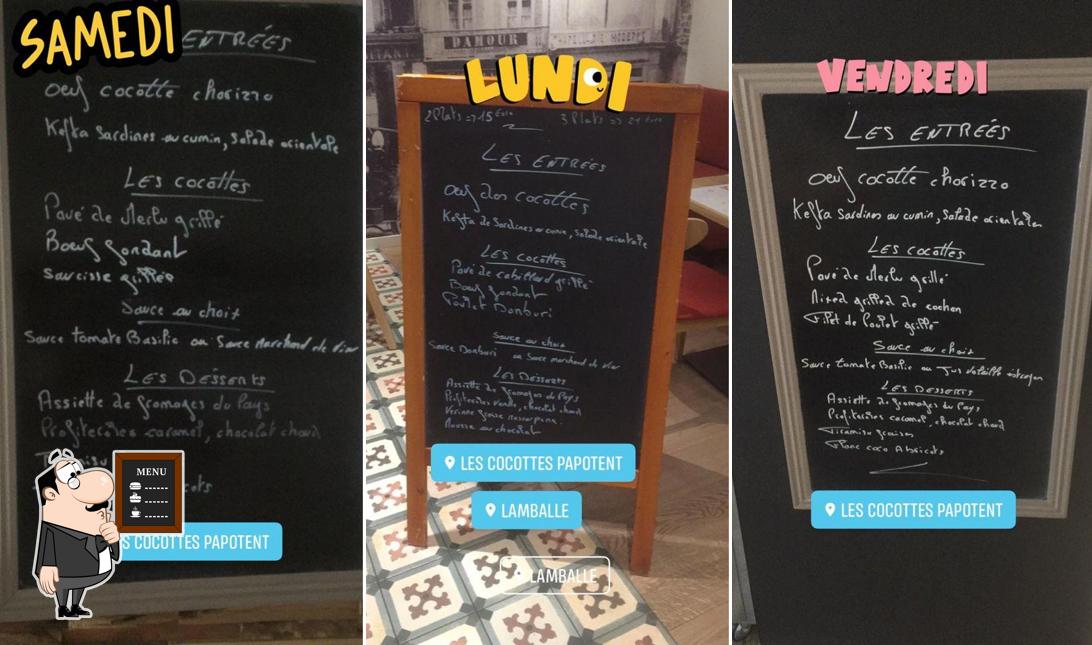 SAMEDI
ENTRÉES
oeuf cocotte chorizzo
Kefta Sardines au cumin, Salade orientale
LES COCOTTES
Pavé de Merlu grillé
Boeuf fondant
Saucisse grillée
Sauce au choix
Sauce tomate Basilic ou Sauce Marchand de vin
LES DESSERTS
Assiette de fromages du Pays
Profiteroles caramel, chocolat chaud
MENU
COCOTTES PAPOTENT
LUNDI
DAMOUR
2 Plats => 15 Euro 3 Plats => 21 Euro
LES ENTRÉES
oeuf dos cocottes
Kefta de Sardines au cumin, Salade orientale
LES COCOTTES
Pavé de cabillaud grillé
Boeuf fondant
Poulet Donburi
Sauce au choix
Sauce Donburi ou Sauce marchand de vin
LES DESSERTS
Assiette de fromages du Pays
Profiteroles vanille, chocolat chaud
Verrine
Mousse au chocolat
LES COCOTTES PAPOTENT
LAMBALLE
LAMBALLE
VENDREDI
LES ENTRÉES
oeuf cocotte chorizzo
Kefta Sardines au cumin, Salade orientales
LES COCOTTES
Pavé de Merlu grillé
Mixed grilled de cochon
Filet de Poulet grillé
Sauce au choix
Sauce tomate Basilic ou Jus volaille estragon
LES DESSERTS
Assiette de fromages du Pays
Profiteroles caramel, chocolat chaud
Tiramisu fraises
Flanc coco Abricots
LES COCOTTES PAPOTENT